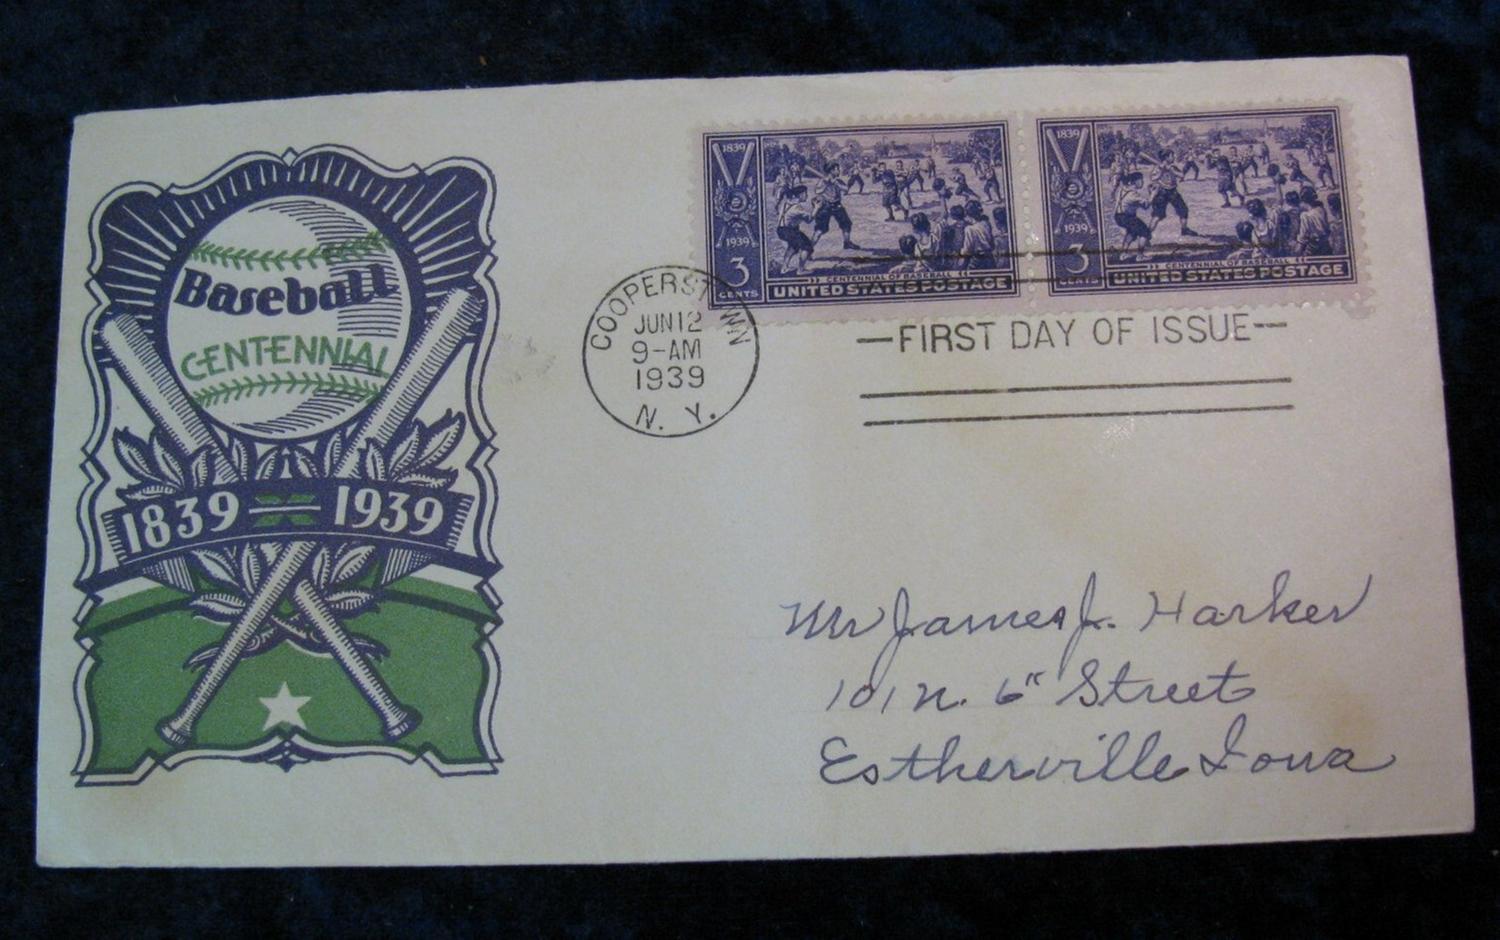 Baseball
CENTENNIAL
1839 — 1939
1839
1939
3
CENTS
CENTENNIAL OF BASEBALL
UNITED STATES POSTAGE
1839
1939
3
CENTS
CENTENNIAL OF BASEBALL
UNITED STATES POSTAGE
COOPERSTOWN
JUN 12
9-AM
1939
N. Y.
—FIRST DAY OF ISSUE—
Mr James J. Harker
101 N. 6" Street
Estherville Iowa